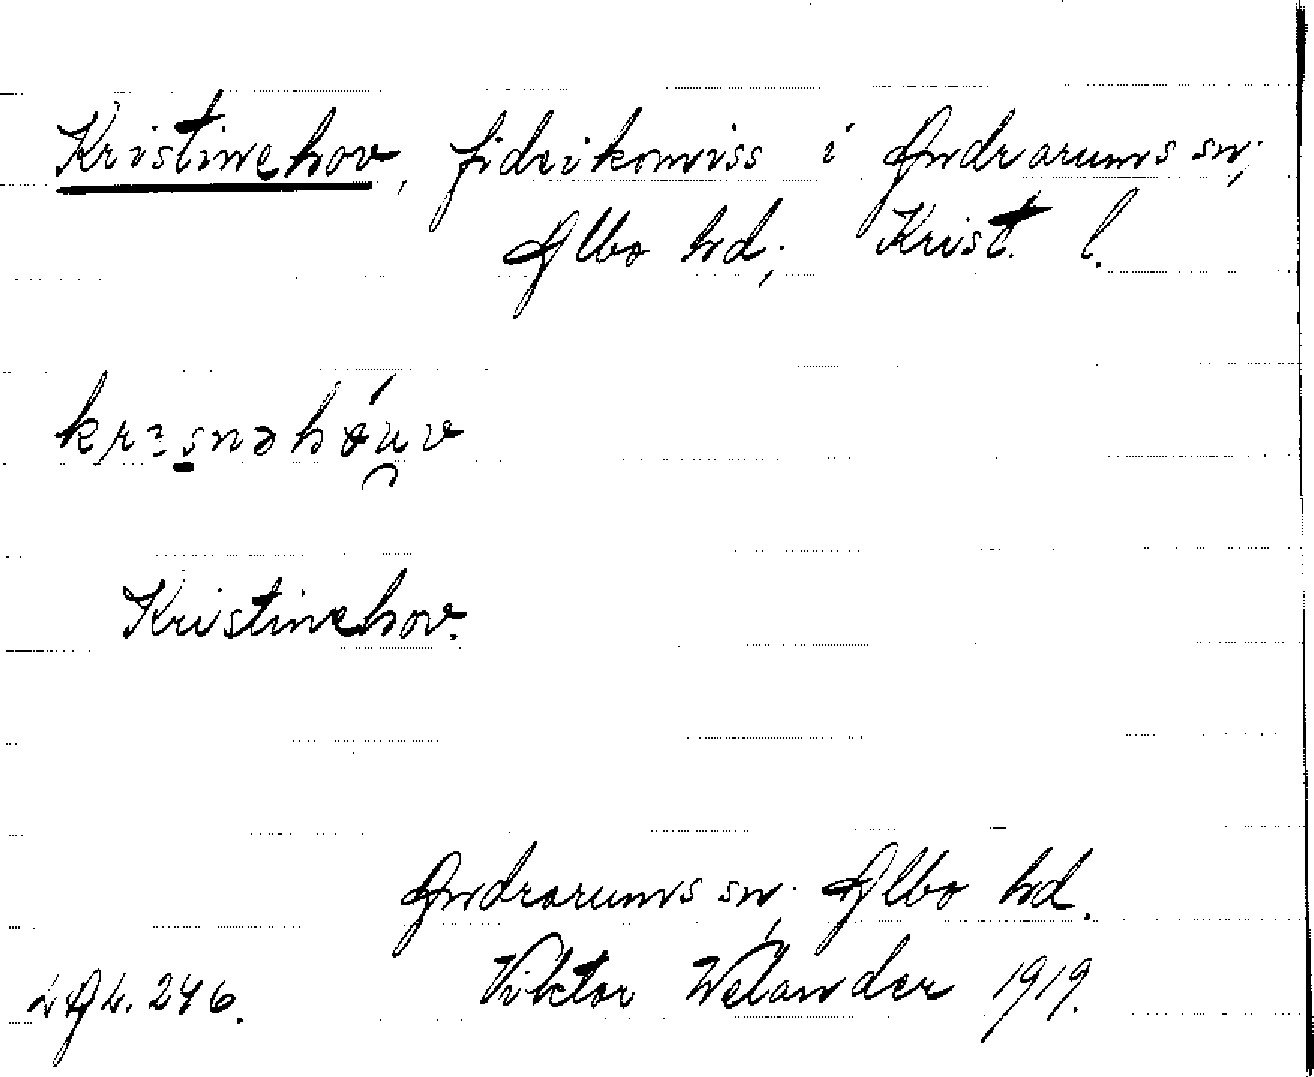 Kristinehov, fideikomiss i Andrarums sn;
Albo hd; Krist. l.
Kristinehov.
Andrarums sn; Albo hd.
Viktor Welander 1919.
LAL. 246.